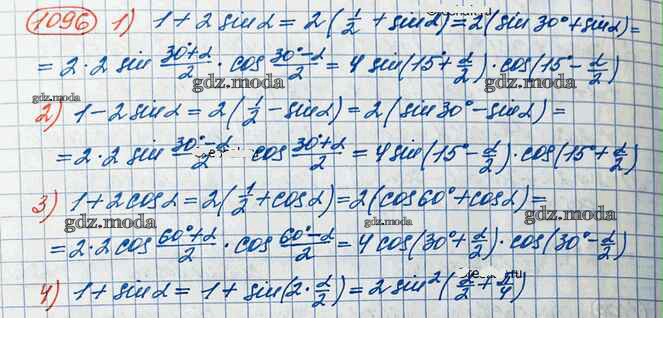 1096 1) 1 + 2 sin α = 2(1/2 + sin α) = 2(sin 30° + sin α) =
= 2·2 sin (30°+α)/2 · cos (30°-α)/2 = 4 sin(15° + α/2) · cos(15° - α/2)
gdz.moda gdz.moda
gdz.moda
2) 1 - 2 sin α = 2(1/2 - sin α) = 2(sin 30° - sin α) =
= 2·2 sin (30°-α)/2 · cos (30°+α)/2 = 4 sin(15° - α/2) · cos(15° + α/2)
3) 1 + 2 cos α = 2(1/2 + cos α) = 2(cos 60° + cos α) =
gdz.moda gdz.moda
= 2·2 cos (60°+α)/2 · cos (60°-α)/2 = 4 cos(30° + α/2) · cos(30° - α/2)
4) 1 + sin α = 1 + sin(2 · α/2) = 2 sin²(α/2 + π/4)